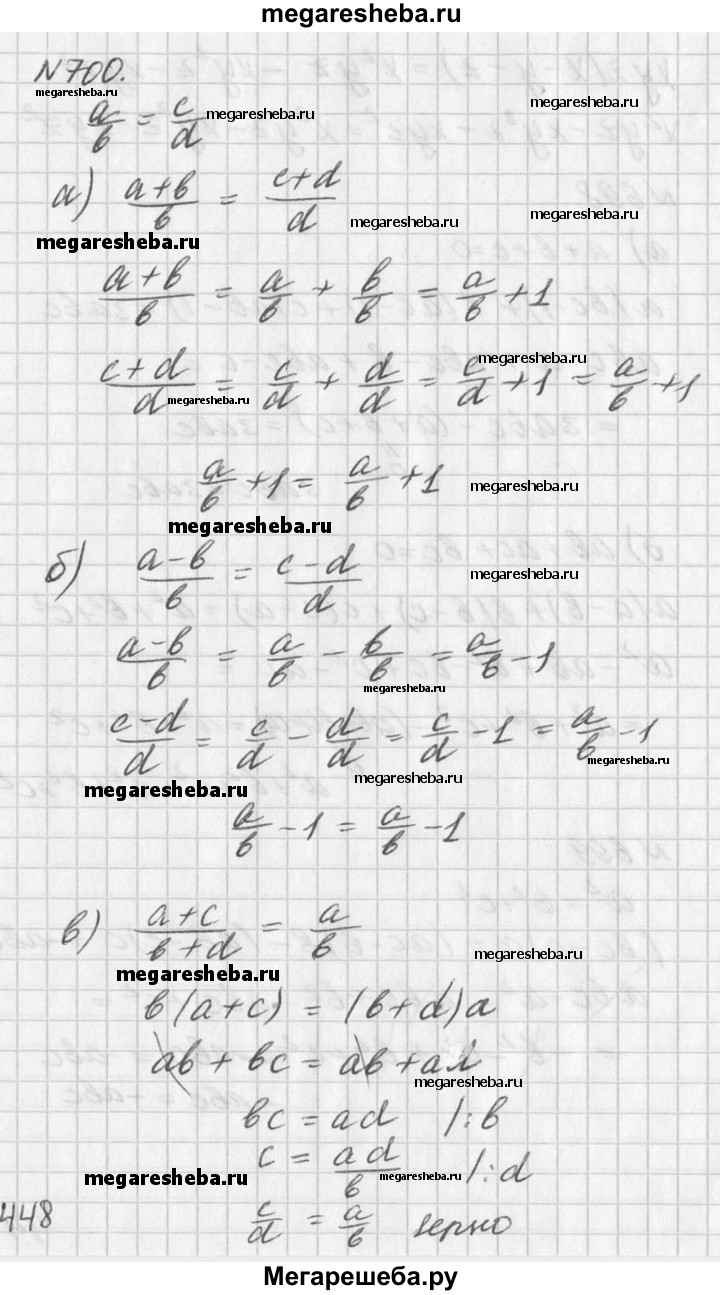 megaresheba.ru
N700.
megaresheba.ru
a/b = c/d megaresheba.ru megaresheba.ru
а) (a+b)/b = (c+d)/d megaresheba.ru megaresheba.ru
megaresheba.ru
(a+b)/b = a/b + b/b = a/b + 1
megaresheba.ru
(c+d)/d = c/d + d/d = c/d + 1 = a/b + 1
megaresheba.ru
a/b + 1 = a/b + 1 megaresheba.ru
megaresheba.ru
б) (a-b)/b = (c-d)/d megaresheba.ru
(a-b)/b = a/b - b/b = a/b - 1
megaresheba.ru
(c-d)/d = c/d - d/d = c/d - 1 = a/b - 1
megaresheba.ru
megaresheba.ru megaresheba.ru
a/b - 1 = a/b - 1
в) (a+c)/(b+d) = a/b megaresheba.ru
megaresheba.ru
b(a+c) = (b+d)a
ab + bc = ab + ad
megaresheba.ru
bc = ad /:b
megaresheba.ru c = ad/b /:d
448 c/d = a/b верно
Мегарешеба.ру